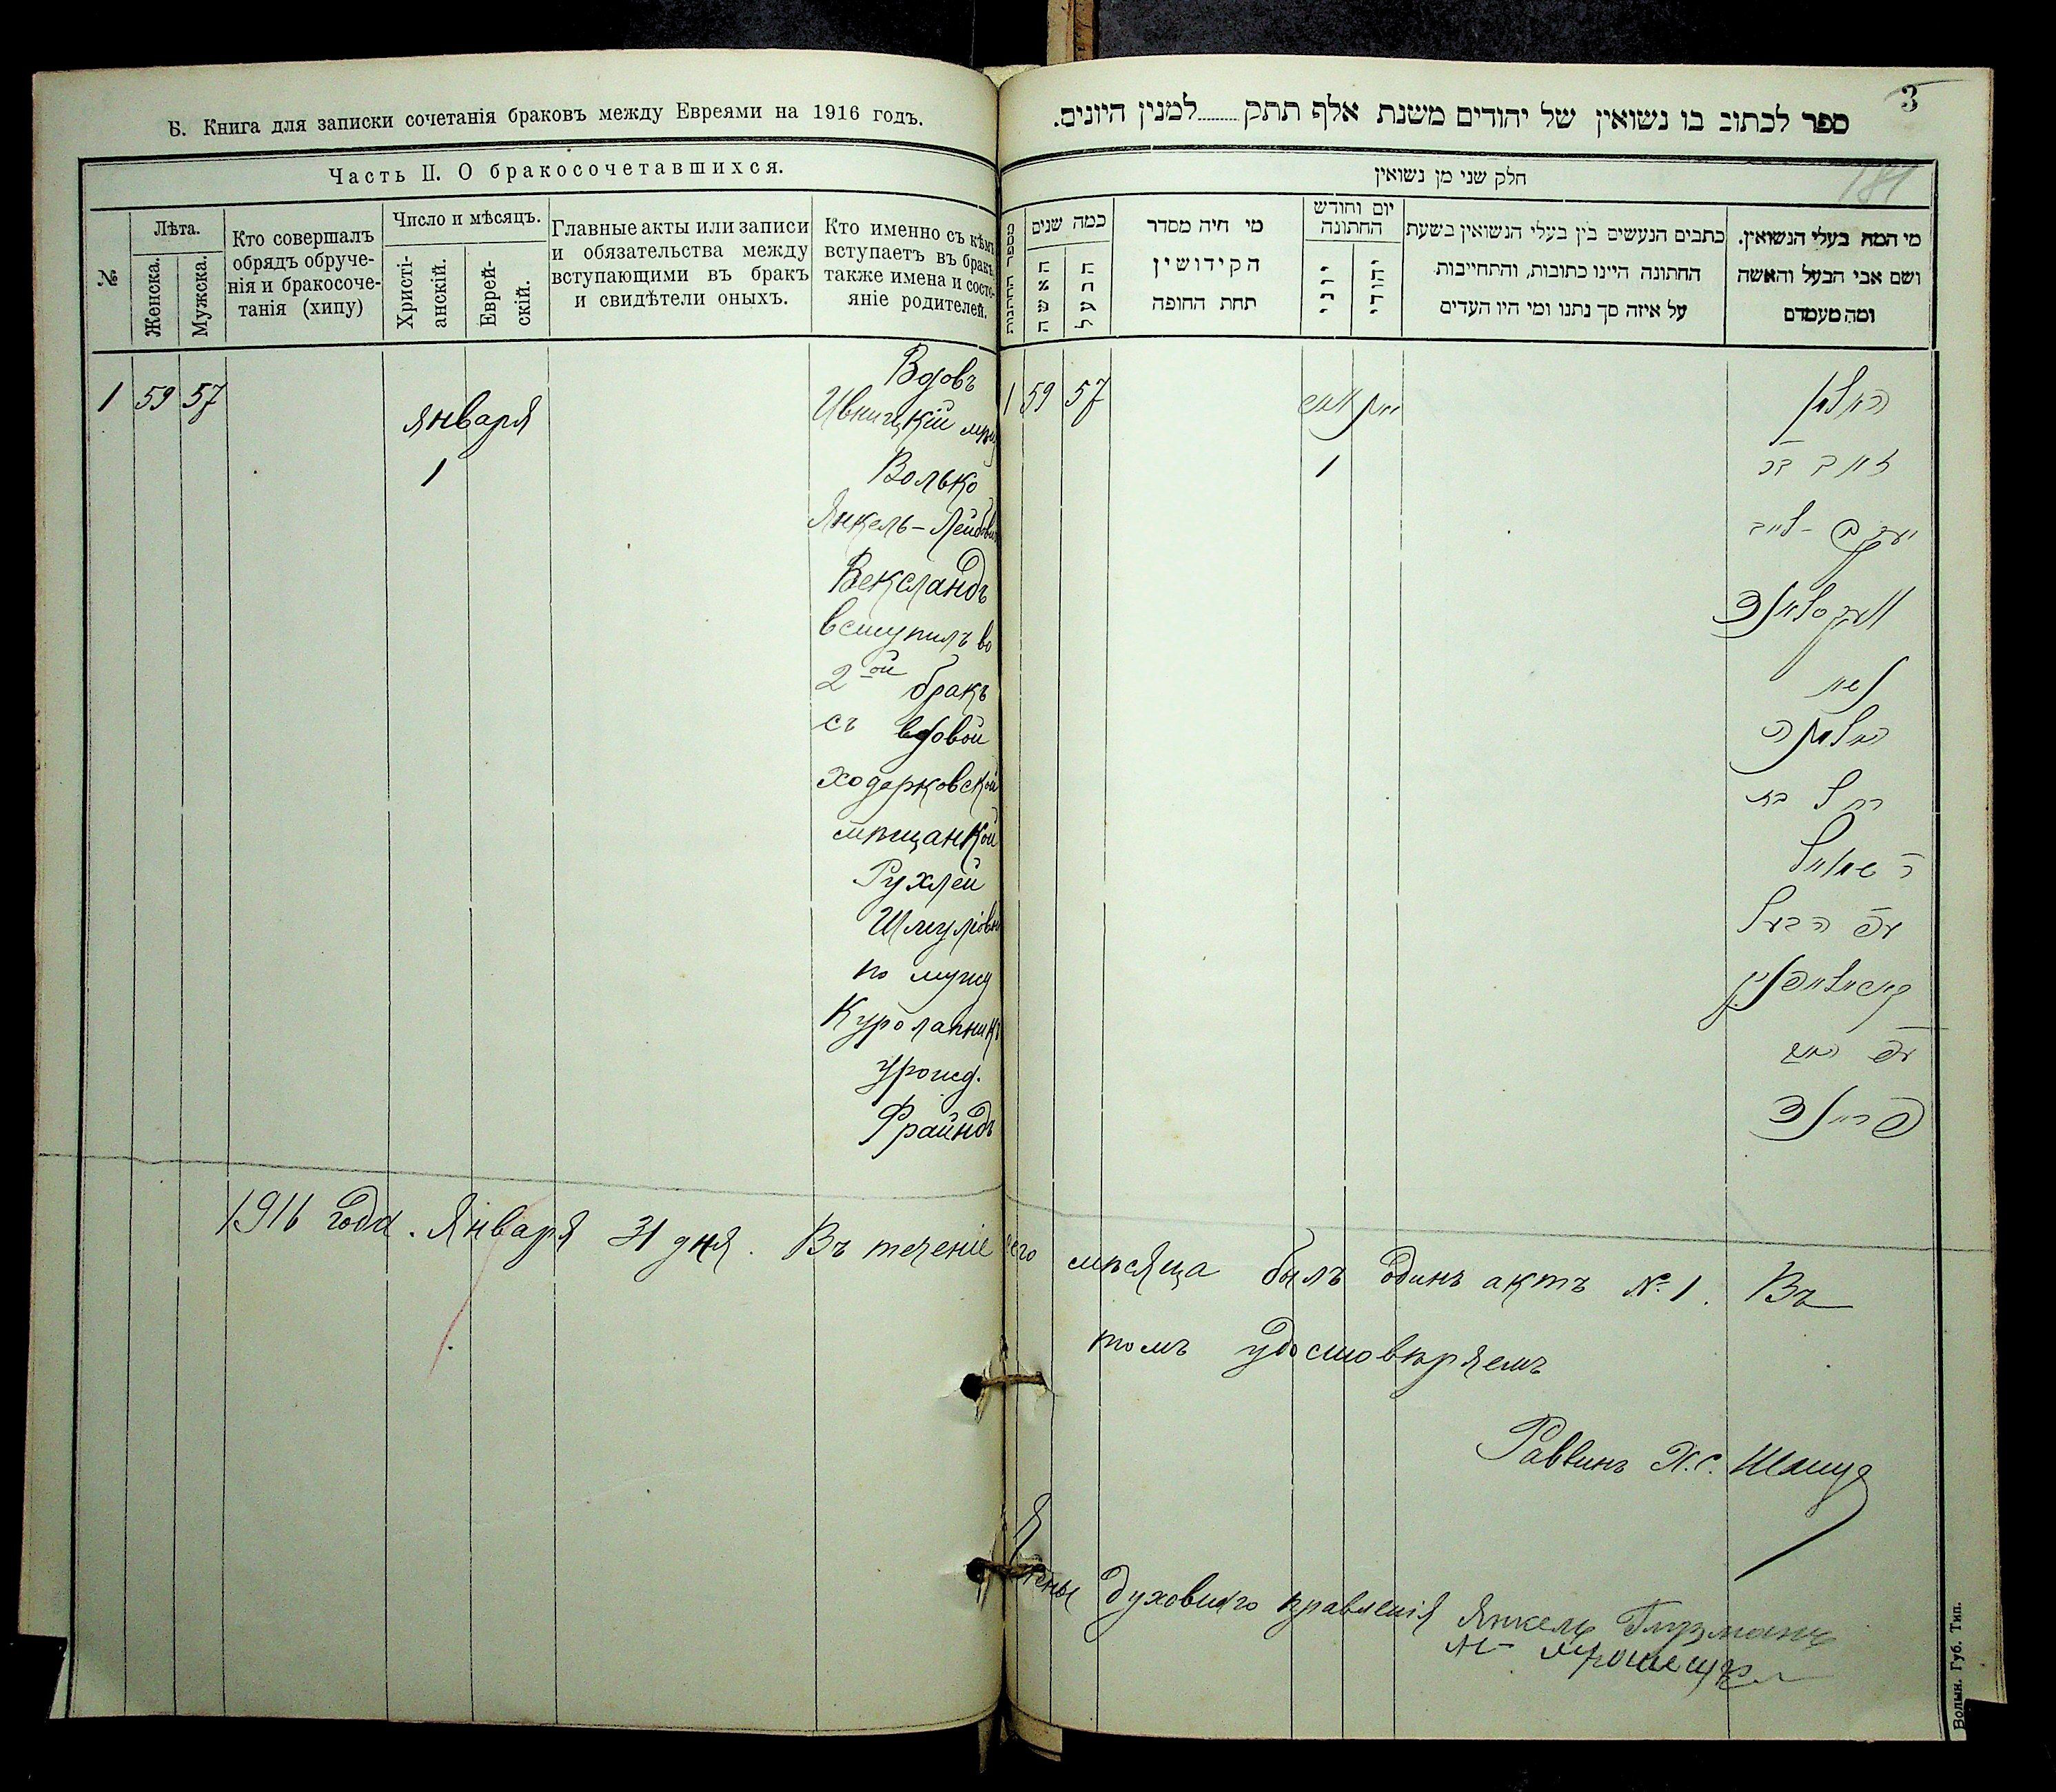 Б. Книга для записки сочетанія браковъ между Евреями на 1916 годъ.
Часть II. О бракосочетавшихся.
№
Лѣта.
Женска.
Мужска.
Кто совершалъ
обрядъ обруче-
нія и бракосоче-
танія (хипу)
Число и мѣсяцъ.
Христі-
анскій.
Еврей-
скій.
Главные акты или записи
и обязательства между
вступающими въ бракъ
и свидѣтели оныхъ.
Кто именно съ кѣмъ
вступаетъ въ бракъ,
также имена и состо-
яніе родителей.
1 59 57
января
1
Вдовъ
Ивницкій мѣщ
Волько
Янкель-Лейбов
Вексландъ
вступилъ во
2ой бракъ
съ вдовой
Ходорковской
мѣщанкой
Рухлей
Шмуліовн
по мужу
Куролапникъ
урожд.
Фрайндъ
3
ספר לכתוב בו נשואין של יהודים משנת אלף תתק........למנין היונים.
181
חלק שני מן נשואין
מספר החתונות
כמה שנים
האשה
הבעל
מי היה מסדר
הקידושין
תחת החופה
יום וחודש
החתונה
יוני
יהודי
כתבים הנעשים בין בעלי הנשואין בשעת
החתונה היינו כתובות, והתחייבות
על איזה סך נתנו ומי היו העדים
מי המה בעלי הנשואין.
ושם אבי הבעל והאשה
ומה מעמדם
1 59 57
1
האלמן
יעקב-לייב
וועקסלאנד
נשא
האלמנה
רחל בת
ר שמואל
עפ הבעל
פריינד
1916 года. Января 31 дня. Въ теченіе сего мѣсяца былъ одинъ актъ №1. Въ
томъ удостовѣряемъ
Раввинъ Х.С.
Члены духовнаго правленія Янкель Глузманъ
Волын. Губ. Тип.